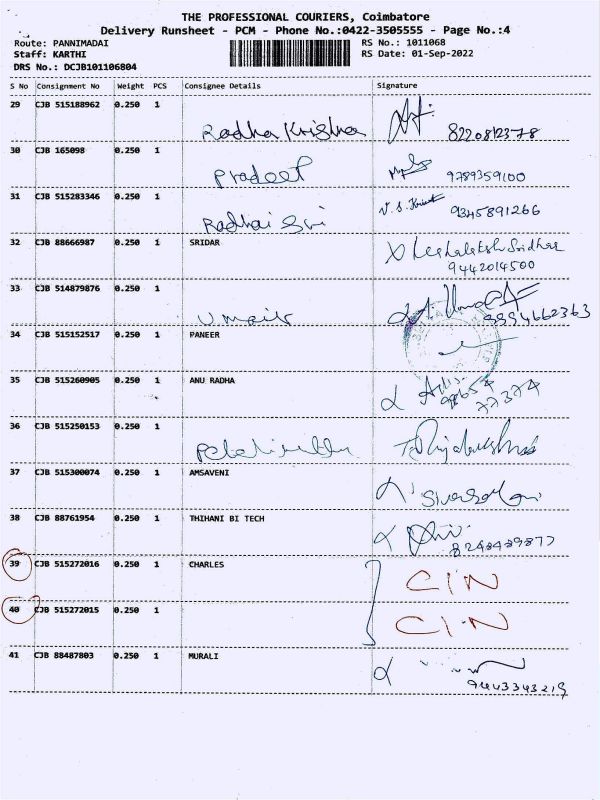 THE PROFESSIONAL COURIERS, Coimbatore
Delivery Runsheet - PCM - Phone No.:0422-3505555 - Page No.:4
Route: PANNIMADAI
Staff: KARTHI
DRS No.: DCJB101106804
RS No.: 1011068
RS Date: 01-Sep-2022
S No Consignment No Weight PCS Consignee Details Signature
29 CJB 515188962 0.250 1
Radha Krishna 8220812378
30 CJB 165098 0.250 1
Pradeep 9789359100
31 CJB 515283346 0.250 1
Radhai Sri 9345891266
32 CJB 88666987 0.250 1 SRIDAR
9442014500
33 CJB 514879876 0.250 1
Umair 9994662363
34 CJB 515152517 0.250 1 PANEER
35 CJB 515260905 0.250 1 ANU RADHA
98654
77374
36 CJB 515250153 0.250 1
37 CJB 515300074 0.250 1 AMSAVENI
38 CJB 88761954 0.250 1 THIHANI BI TECH
39 CJB 515272016 0.250 1 CHARLES CIN
40 CJB 515272015 0.250 1 CIN
41 CJB 88487803 0.250 1 MURALI
9443343219